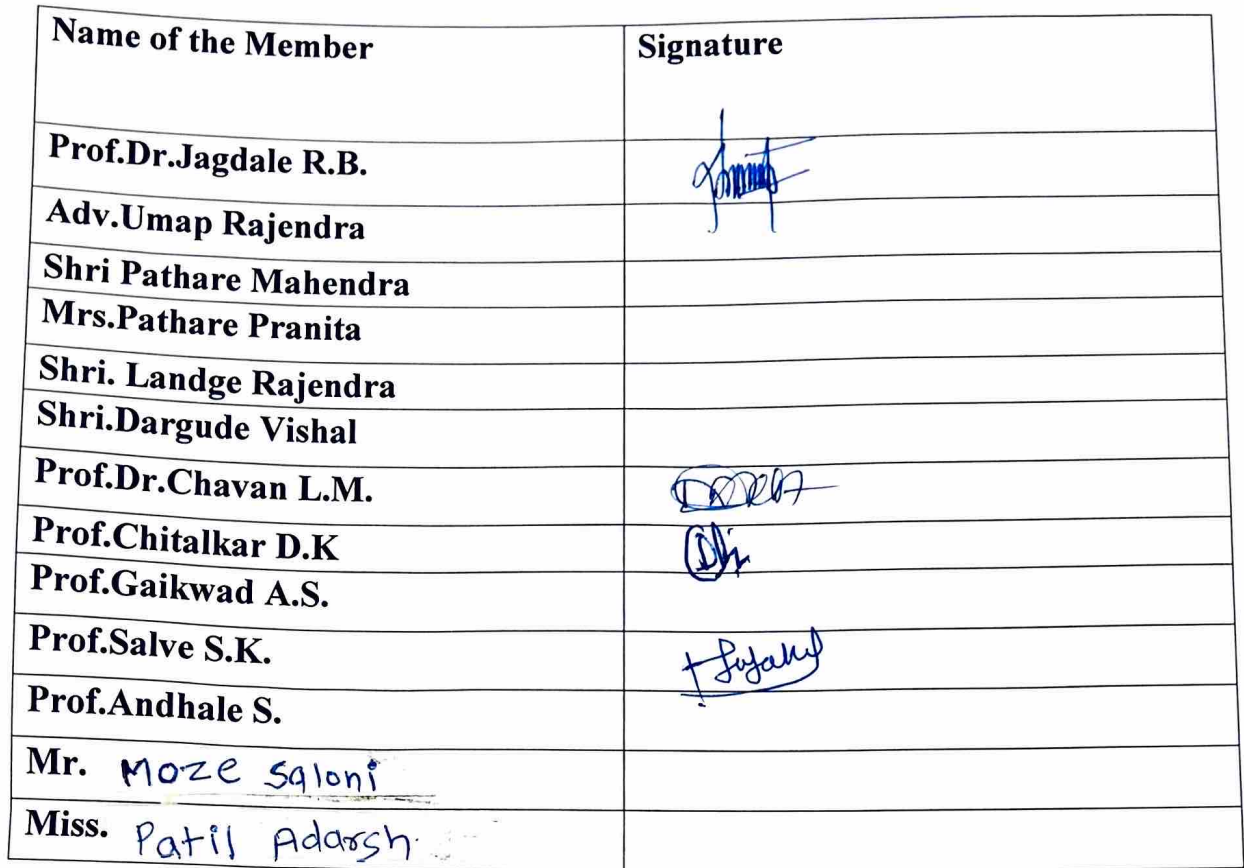 Name of the Member Signature
Prof.Dr.Jagdale R.B.
Adv.Umap Rajendra
Shri Pathare Mahendra
Mrs.Pathare Pranita
Shri. Landge Rajendra
Shri.Dargude Vishal
Prof.Dr.Chavan L.M.
Prof.Chitalkar D.K
Prof.Gaikwad A.S.
Prof.Salve S.K.
Prof.Andhale S.
Mr. Moze Saloni
Miss. Patil Adarsh.